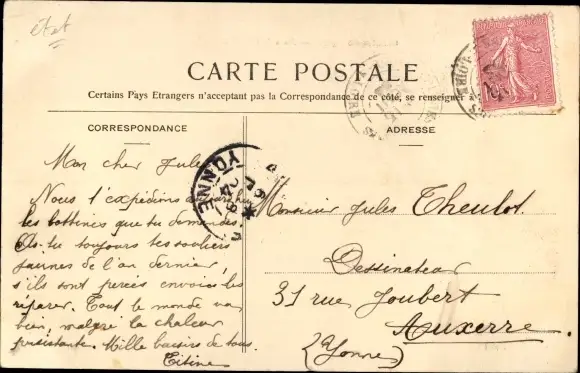 état
CARTE POSTALE
Certains Pays Etrangers n'acceptant pas la Correspondance de ce côté, se renseigner
CORRESPONDANCE
Mon cher Jules
Nous t'expédions aujourd'hui
les bottines que tu demandes
As-tu toujours tes souliers
jaunes de l'an dernier,
s'ils sont percés envoies les
réparer. Tout le monde va
bien, malgré la chaleur
persistante. Mille baisers de tous.
Titine
YONNE
ADRESSE
Monsieur Jules Theulot.
Dessinateur
31 rue Joubert
Auxerre.
(Yonne)